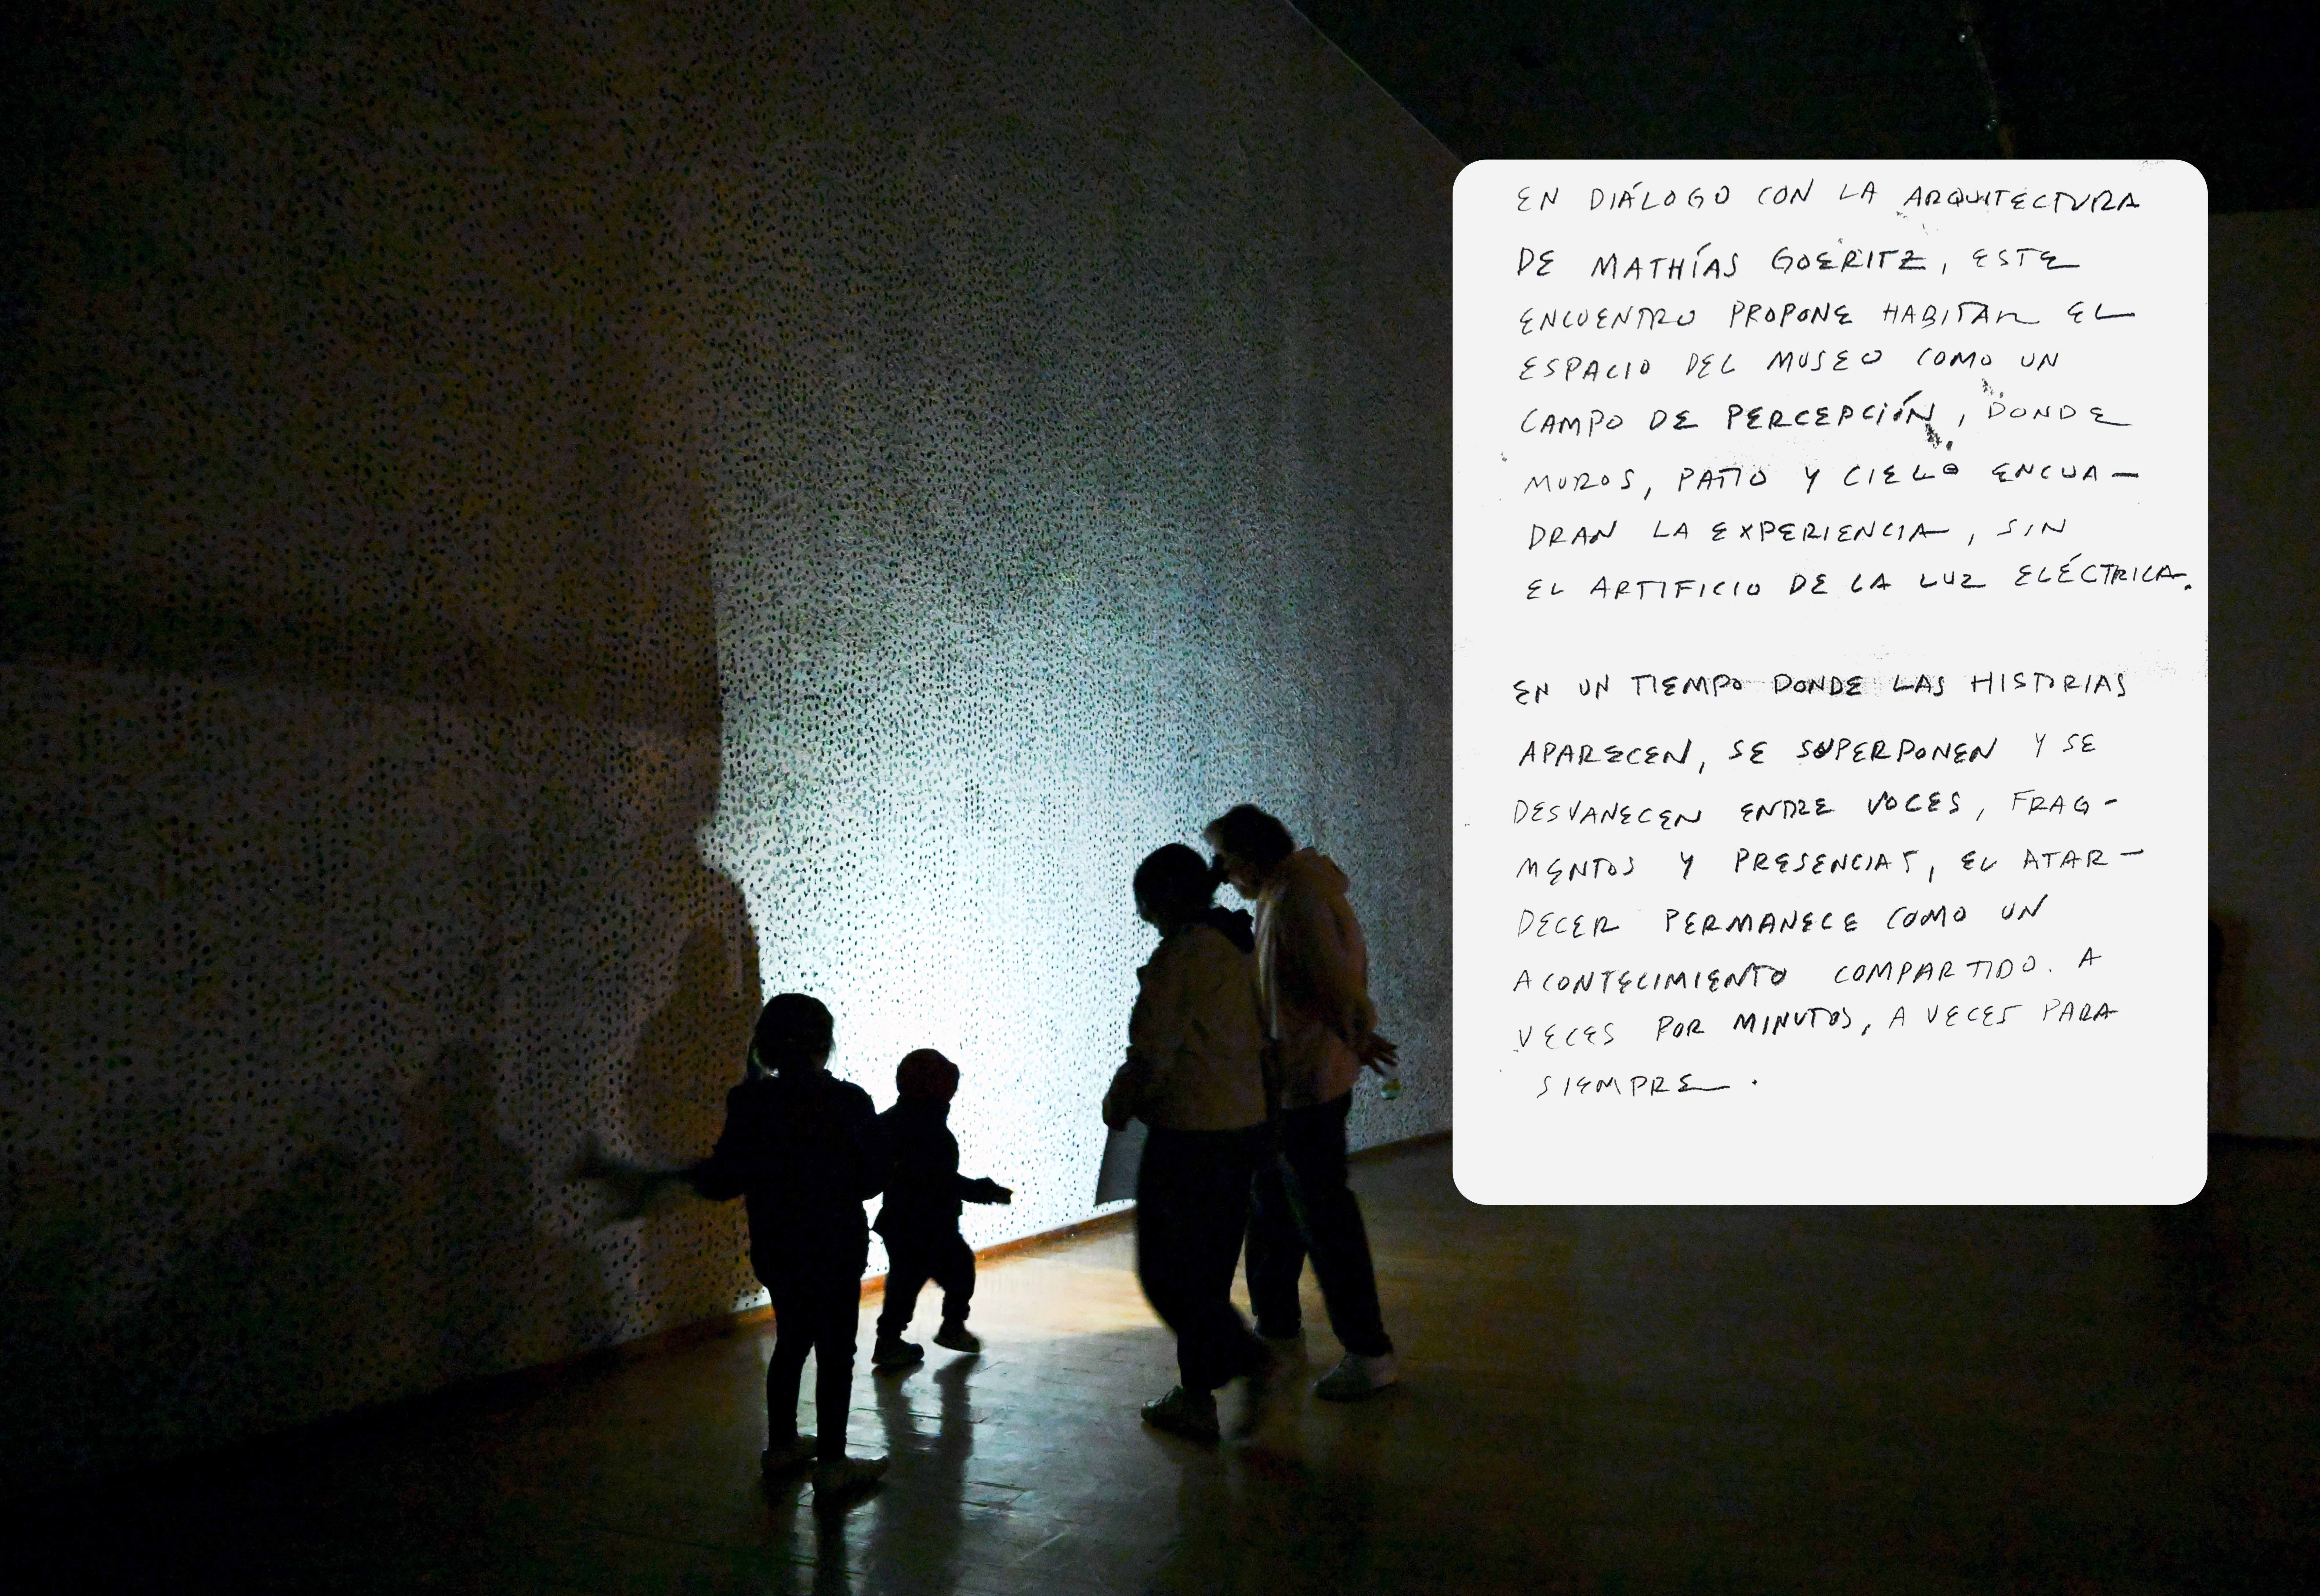 EN DIÁLOGO CON LA ARQUITECTURA
DE MATHÍAS GOERITZ, ESTE
ENCUENTRO PROPONE HABITAR EL
ESPACIO DEL MUSEO COMO UN
CAMPO DE PERCEPCIÓN, DONDE
MUROS, PATIO Y CIELO ENCUA-
DRAN LA EXPERIENCIA, SIN
EL ARTIFICIO DE LA LUZ ELÉCTRICA.
EN UN TIEMPO DONDE LAS HISTORIAS
APARECEN, SE SUPERPONEN Y SE
DESVANECEN ENTRE VOCES, FRAG-
MENTOS Y PRESENCIAS, EL ATAR-
DECER PERMANECE COMO UN
ACONTECIMIENTO COMPARTIDO. A
VECES POR MINUTOS, A VECES PARA
SIEMPRE.